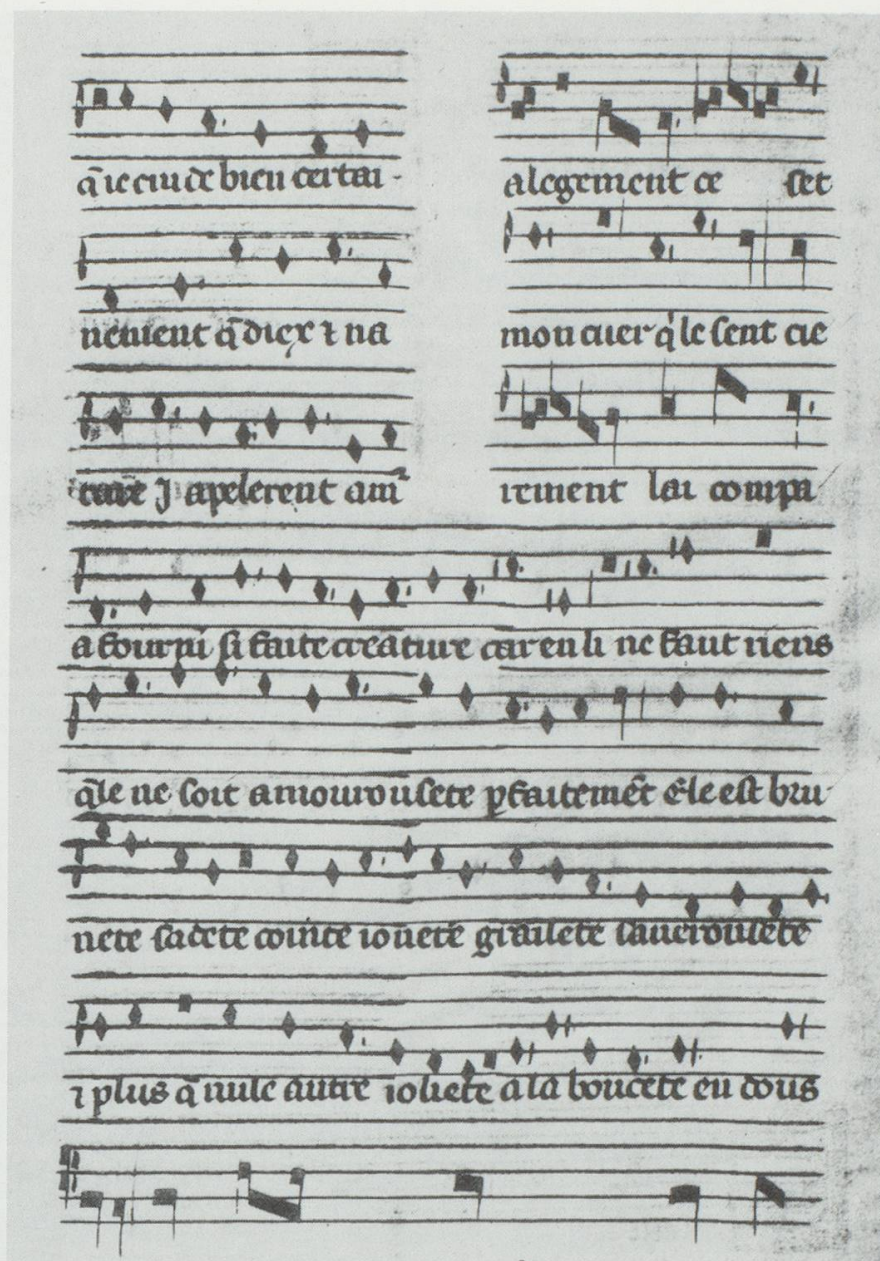 q̄ ie cui de bien certai-
nement q̄ diex ⁊ na
ture J apelerent am̄
alegement ce set
mon cuer q̍ le sent cie
rement lai compa
a fourni si faite creature car en li ne faut riens
q̄le ne soit amourousete ꝑfaitemēt Ele est bru-
nete sadete cointe iouete grailete sauerousete
⁊ plus q̄ nule autre ioliete a la boucete en dous